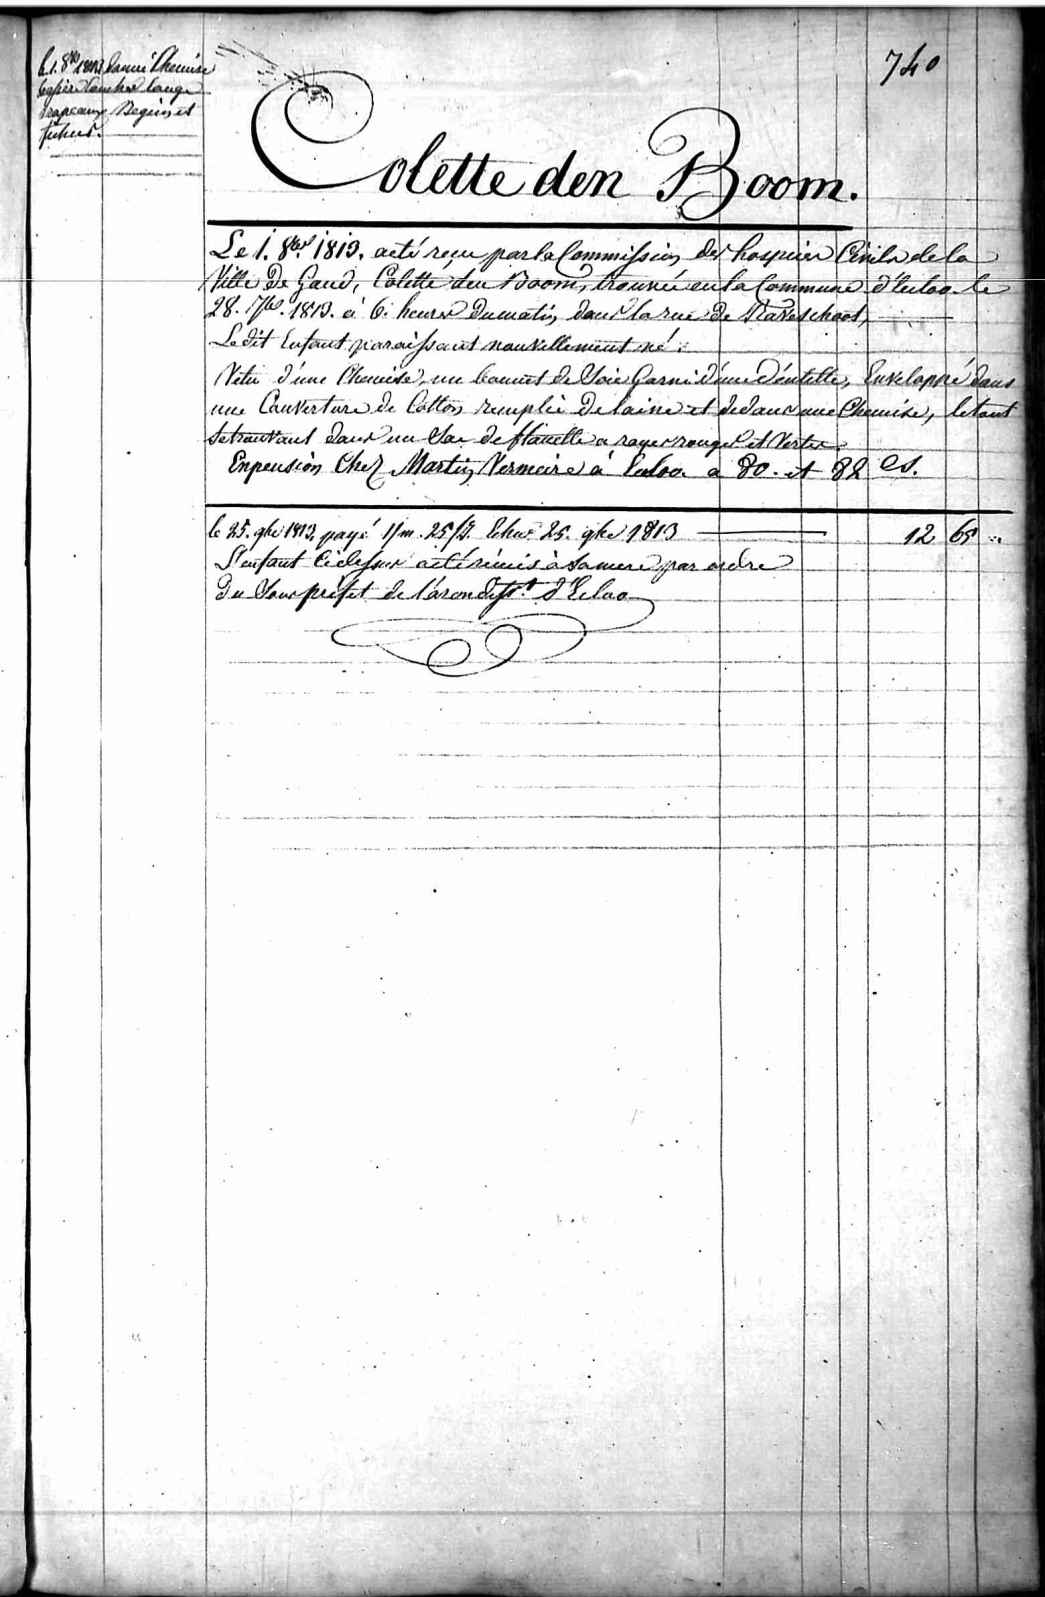 740
le 1. 8bre 1813 donné Chemise
couches lange
drapeaux Beguin et
fichus.
Colette den Boom.
Le 1. 8bre. 1813. a été reçu par la Commission des hospices Civils de la
Ville De Gand, Colette den Boom, trouvée en la Commune d'Eecloo le
28. 7bre. 1813. à 6. heures du matin, dans la rue De Raveschoot,
Le dit Enfant paraissant nouvellement né.
Vetu d'une Chemise, un bonnet de Soie Garni d'une dentelle, Enveloppé dans
une Couverture de Cotton remplie De laine et dedans une Chemise, le tout
se trouvant dans un Sac de flanelle a rayes rouges et Vertes.
En pension Chez Martin Vermeire à Eecloo. a 80. et 82 Cs.
le 25. 9bre 1813. payé 1/m. 25/j. Echu 25. 9bre 1813 12 65 "
L'enfant ci dessus a été remis à sa mere par ordre
du Sous préfet de l'arondisst. d'Eecloo